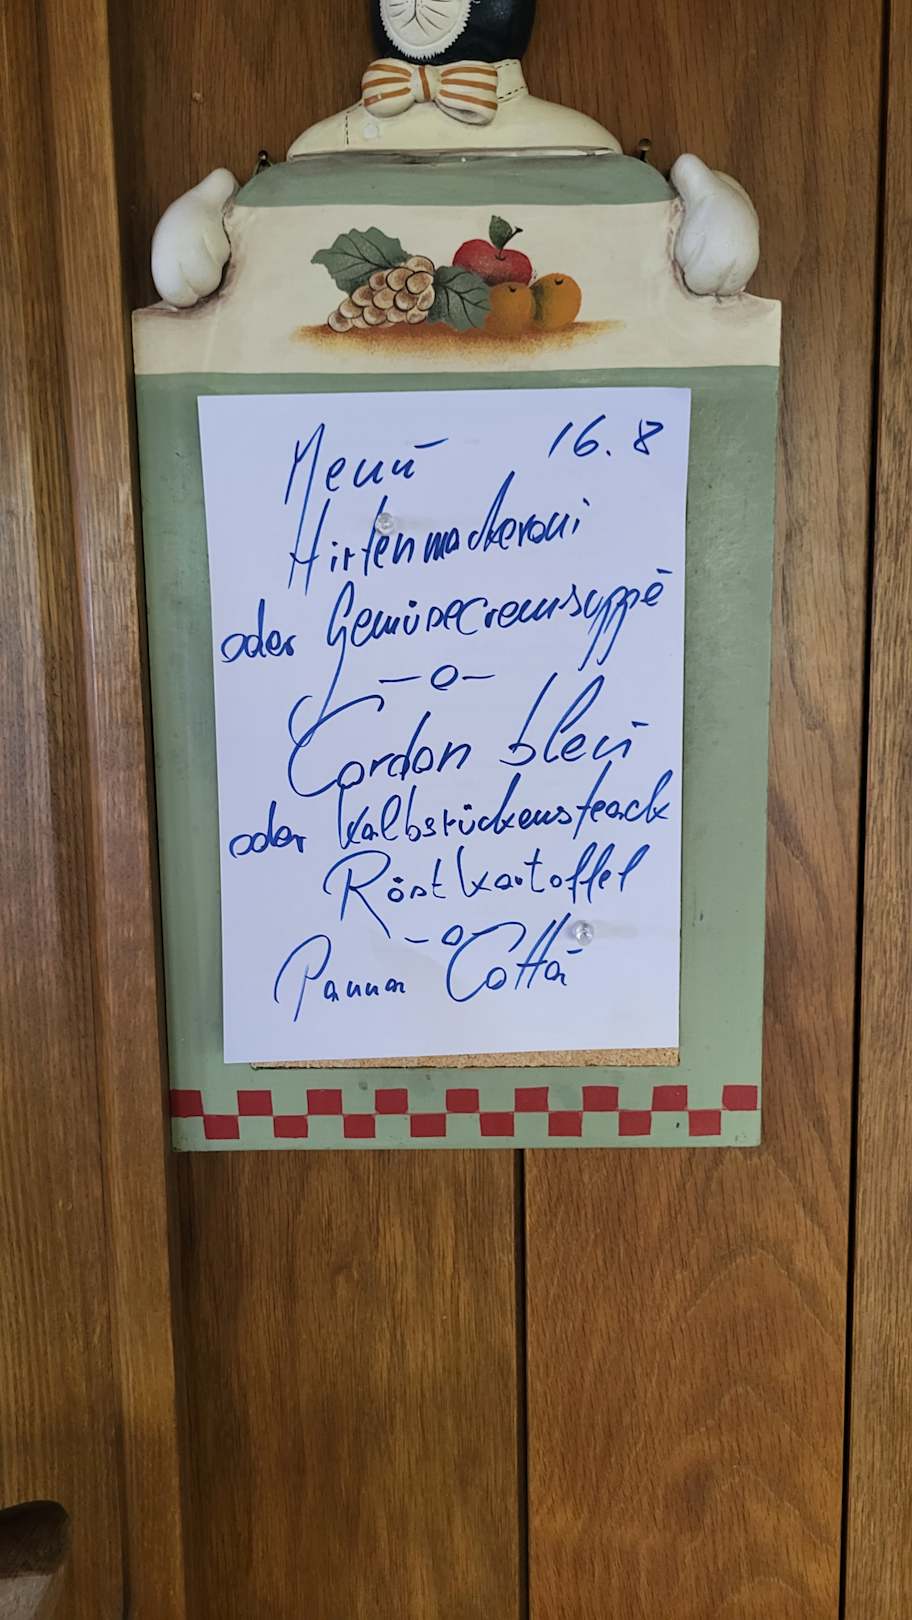 Menü 16.8
Hirtenmackeroni
oder Gemüsecremsuppe
—o—
Cordon bleu
oder Kalbsrückensteack
Röstkartoffel
—o—
Panna Cotta